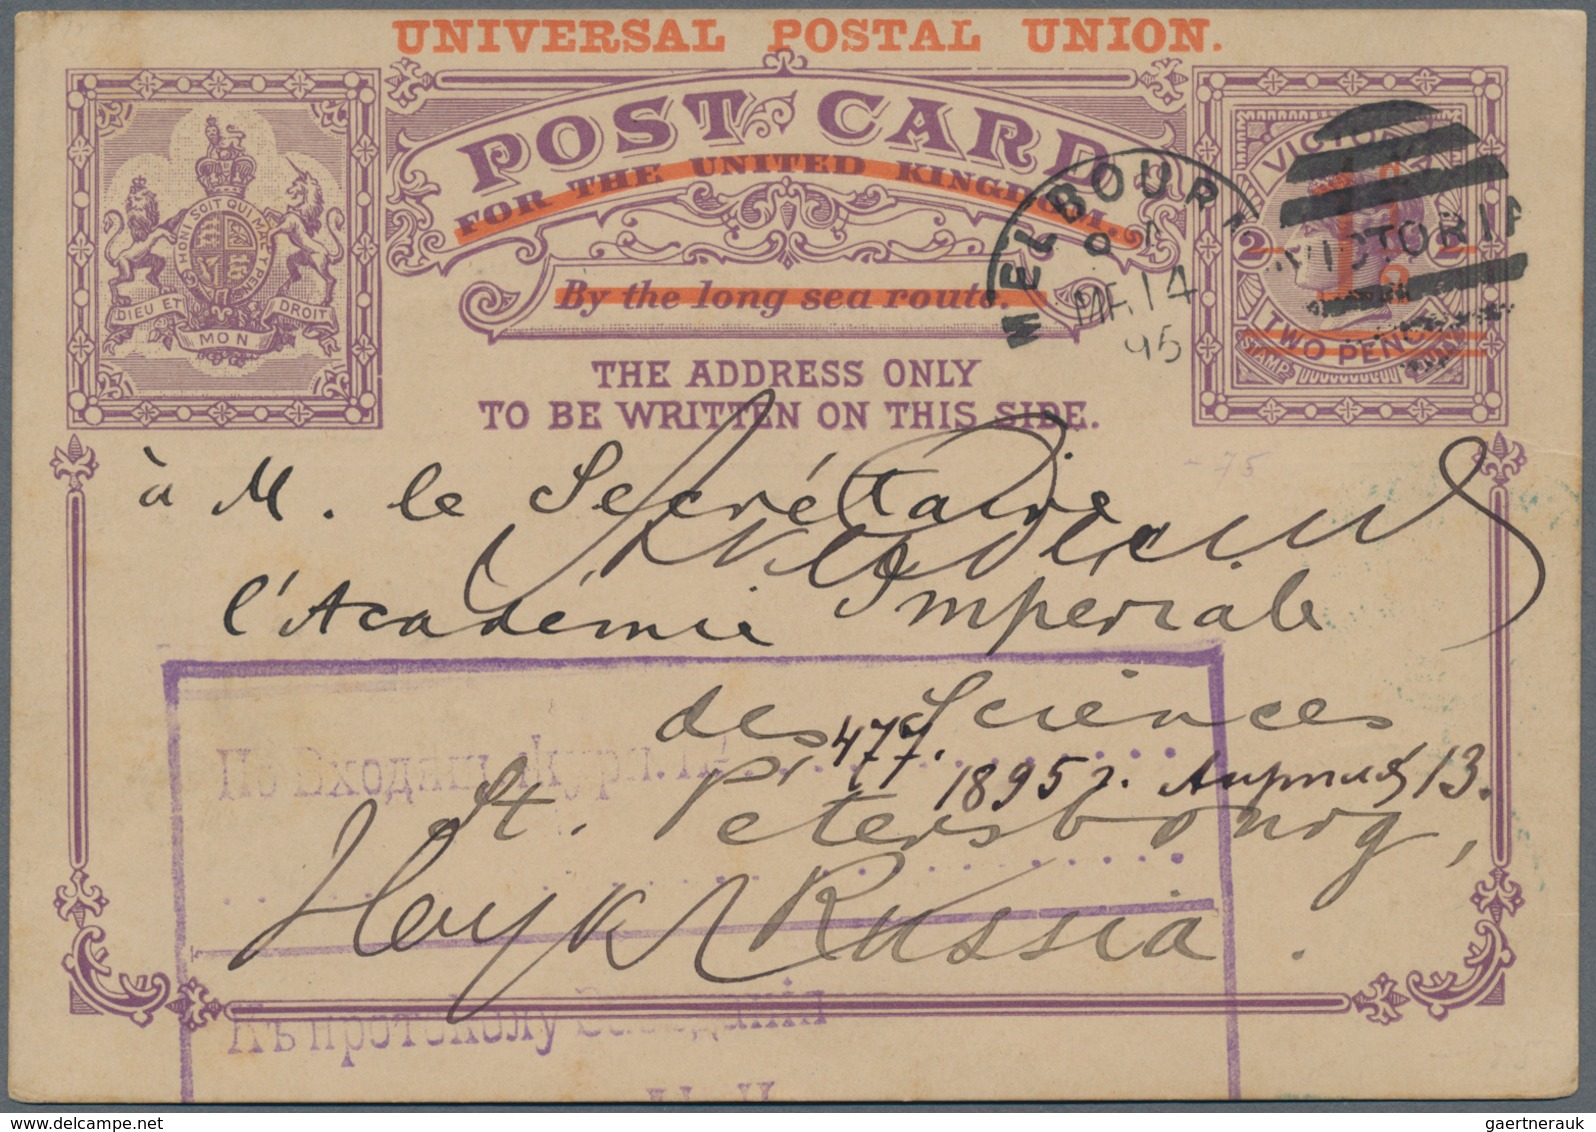 UNIVERSAL POSTAL UNION.
POST CARD
FOR THE UNITED KINGDOM.
By the long sea route.
THE ADDRESS ONLY
TO BE WRITTEN ON THIS SIDE.
HONI SOIT QUI MAL Y PENSE
DIEU ET MON DROIT
MELBOURN
MR 14
95
VICTORIA
VICTORIA
2 2
TWO PENCE
STAMP
- 75
à M. le Secrétaire
l'Académie Impériale
des Sciences
St. Pétersbourg,
Russia.
По Входящ. журн. №
477.
1895 г. Апреля 13.
Къ протоколу Засѣданія
delcampe.net
gaertnerauk